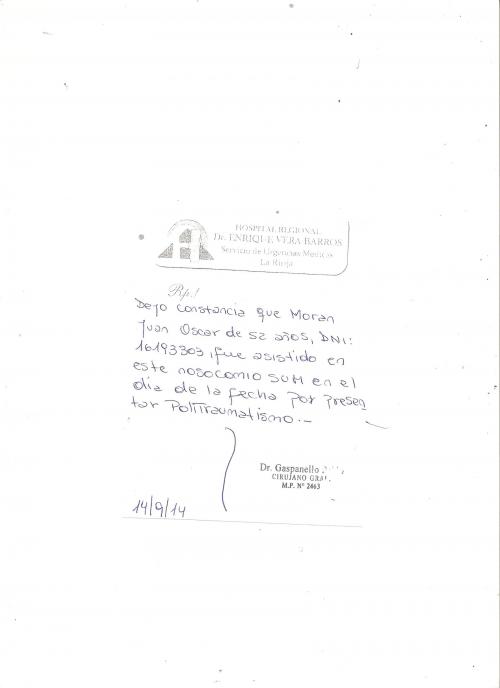 HOSPITAL REGIONAL
Dr. ENRIQUE VERA BARROS
Servicio de Urgencias Medicas
La Rioja
Rp/
Dejo constancia que Moran
Juan Oscar de 52 años, DNI:
16193303, fue asistido en
este nosocomio SUM en el
día de la fecha por presen
tar Politraumatismo.-
Dr. Gaspanello
CIRUJANO GRAL.
M.P. N° 2463
14/9/14